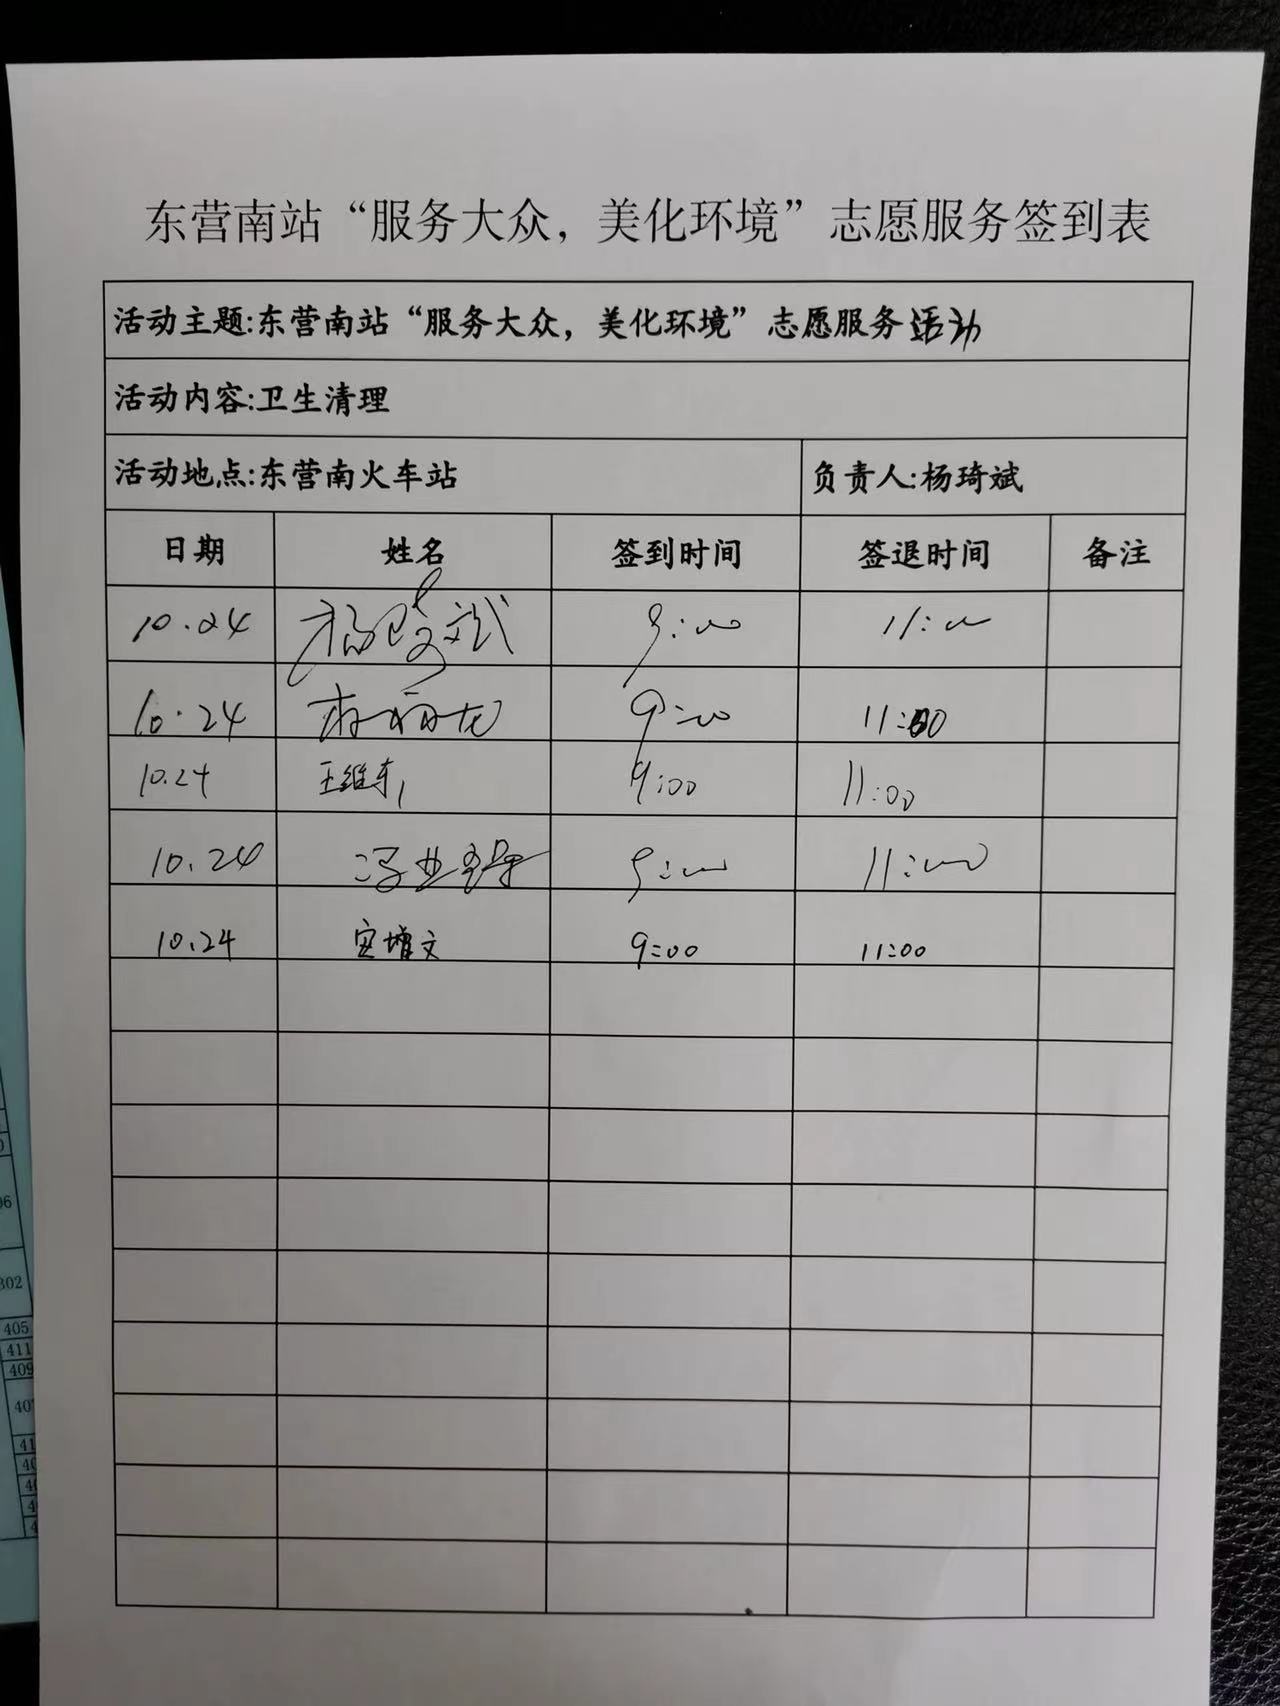 东营南站“服务大众，美化环境”志愿服务签到表
活动主题:东营南站“服务大众，美化环境”志愿服务活动
活动内容:卫生清理
活动地点:东营南火车站 负责人:杨琦斌
日期 姓名 签到时间 签退时间 备注
10.24 9:00 11:00
10.24 9:00 11:00
10.24 王维东 9:00 11:00
10.24 冯业 9:00 11:00
10.24 增文 9:00 11:00
06
302
405
411
409
407